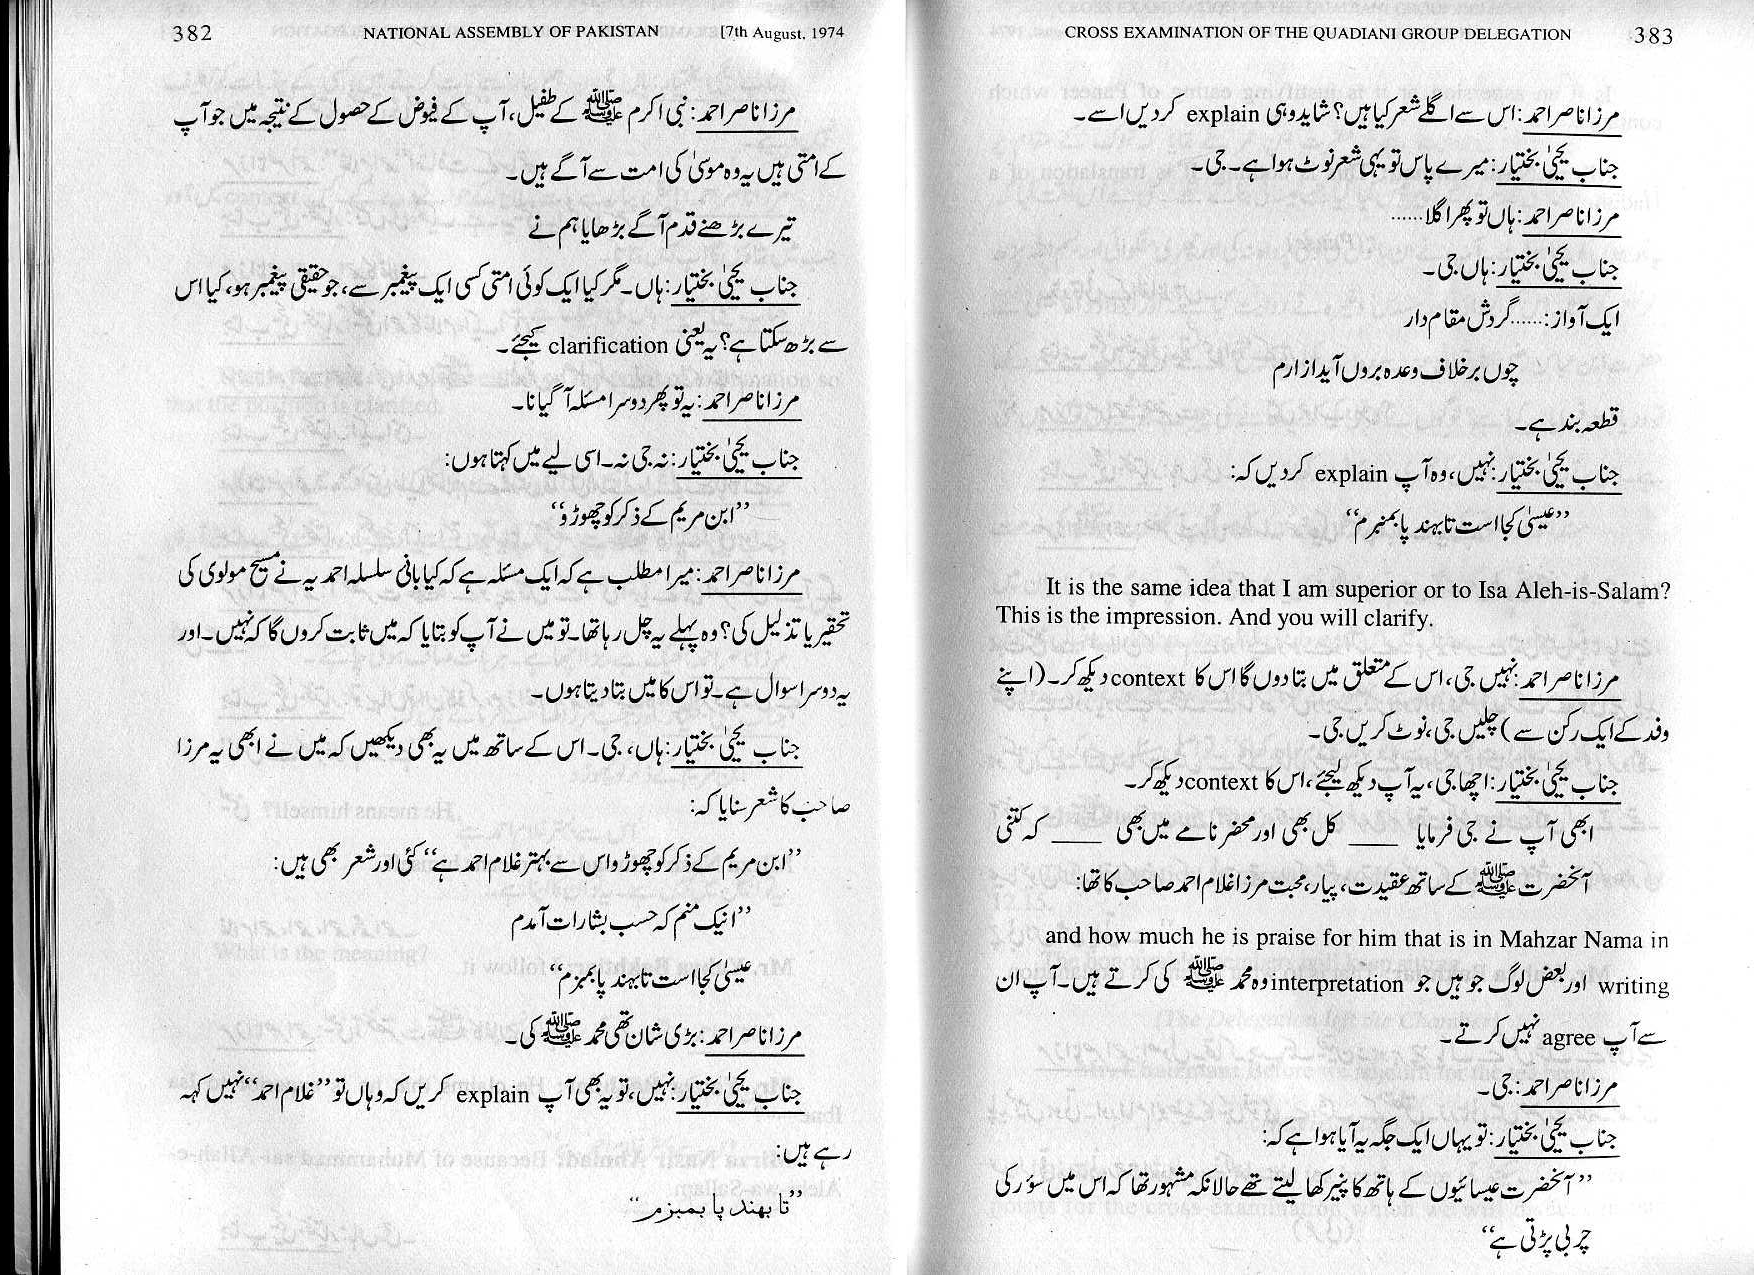 382 NATIONAL ASSEMBLY OF PAKISTAN [7th August, 1974
مرزا ناصر احمد: نبی اکرم ﷺ کے طفیل، آپ کے فیوض کے حصول کے نتیجہ میں جو آپ
کے امتی ہیں یہ وہ موسیٰ کی امت سے آگے ہیں۔
تیرے بڑھنے قدم آگے بڑھایا ہم نے
جناب یحییٰ بختیار: ہاں۔ مگر کیا ایک کوئی امتی کسی ایک پیغمبر سے، جو حقیقی پیغمبر ہو، کیا اس
سے بڑھ سکتا ہے؟ یہ یعنی clarification کیجئے۔
مرزا ناصر احمد: یہ تو پھر دوسرا مسئلہ آ گیا نا۔
جناب یحییٰ بختیار: نہ جی نہ۔ اسی لیے میں کہتا ہوں:
”ابن مریم کے ذکر کو چھوڑو“
مرزا ناصر احمد: میرا مطلب ہے کہ ایک مسئلہ ہے کہ کیا بانی سلسلہ احمدیہ نے مسیح مولوی کی
تحقیر یا تذلیل کی؟ وہ پہلے یہ چل رہا تھا۔ تو میں نے آپ کو بتایا کہ میں ثابت کروں گا کہ نہیں۔ اور
یہ دوسرا سوال ہے۔ تو اس کا میں بتا دیتا ہوں۔
جناب یحییٰ بختیار: ہاں، جی۔ اس کے ساتھ میں یہ بھی دیکھیں کہ میں نے ابھی یہ مرزا
صاحب کا شعر سنایا کہ:
”ابن مریم کے ذکر کو چھوڑو اس سے بہتر غلام احمد ہے“ کئی اور شعر بھی ہیں:
”انیک منم کہ حسب بشارات آمدم
عیسیٰ کجا است تا بہند پا بمبزم“
مرزا ناصر احمد: بڑی شان تھی محمد ﷺ کی۔
جناب یحییٰ بختیار: نہیں، تو یہ بھی آپ explain کریں کہ وہاں تو ”غلام احمد“ نہیں کہہ
رہے ہیں:
”تا بھند پا بمبزم“
CROSS EXAMINATION OF THE QUADIANI GROUP DELEGATION 383
مرزا ناصر احمد: اس سے اگلے شعر کیا ہیں؟ شاید وہی explain کر دیں اسے۔
جناب یحییٰ بختیار: میرے پاس تو یہی شعر نوٹ ہوا ہے۔ جی۔
مرزا ناصر احمد: ہاں تو پھر اگلا......
جناب یحییٰ بختیار: ہاں جی۔
ایک آواز: ......گردش مقام دار
چوں بر خلاف وعدہ بروں آید از ارم
قطعہ بند ہے۔
جناب یحییٰ بختیار: نہیں، وہ آپ explain کر دیں کہ:
”عیسیٰ کجا است تا بہند پا بمنبرم“
It is the same idea that I am superior or to Isa Aleh-is-Salam?
This is the impression. And you will clarify.
مرزا ناصر احمد: نہیں جی، اس کے متعلق میں بتا دوں گا اس کا context دیکھ کر۔ (اپنے
وفد کے ایک رکن سے) چلیں جی، نوٹ کریں جی۔
جناب یحییٰ بختیار: اچھا جی، یہ آپ دیکھ لیجئے، اس کا context دیکھ کر۔
ابھی آپ نے جی فرمایا ____ کل بھی اور محضر نامے میں بھی ____ کہ کتنی
آنحضرت ﷺ کے ساتھ عقیدت، پیار، محبت مرزا غلام احمد صاحب کا تھا:
and how much he is praise for him that is in Mahzar Nama in
writing اور بعض لوگ جو ہیں جو interpretation وہ محمد ﷺ کی کرتے ہیں۔ آپ ان
سے آپ agree نہیں کرتے۔
مرزا ناصر احمد: جی۔
جناب یحییٰ بختیار: تو یہاں ایک جگہ یہ آیا ہوا ہے کہ:
”آنحضرت عیسائیوں کے ہاتھ کا پنیر کھا لیتے تھے حالانکہ مشہور تھا کہ اس میں سؤر کی
چربی پڑتی ہے“